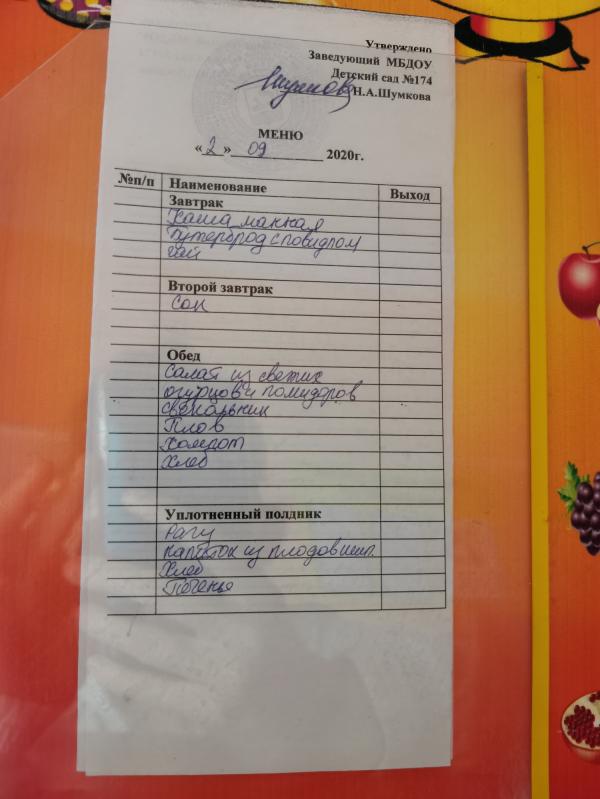 Утверждено
Заведующий МБДОУ
Детский сад №174
Н.А.Шумкова
МЕНЮ
«2» 09 2020г.
№п/п Наименование Выход
Завтрак
Каша манная
Бутерброд с повидлом
чай
Второй завтрак
Сок
Обед
Салат из свежих
огурцов и помидоров
свекольник
Плов
Компот
Хлеб
Уплотненный полдник
Рагу
напиток из плодов шип.
Хлеб
Печенье